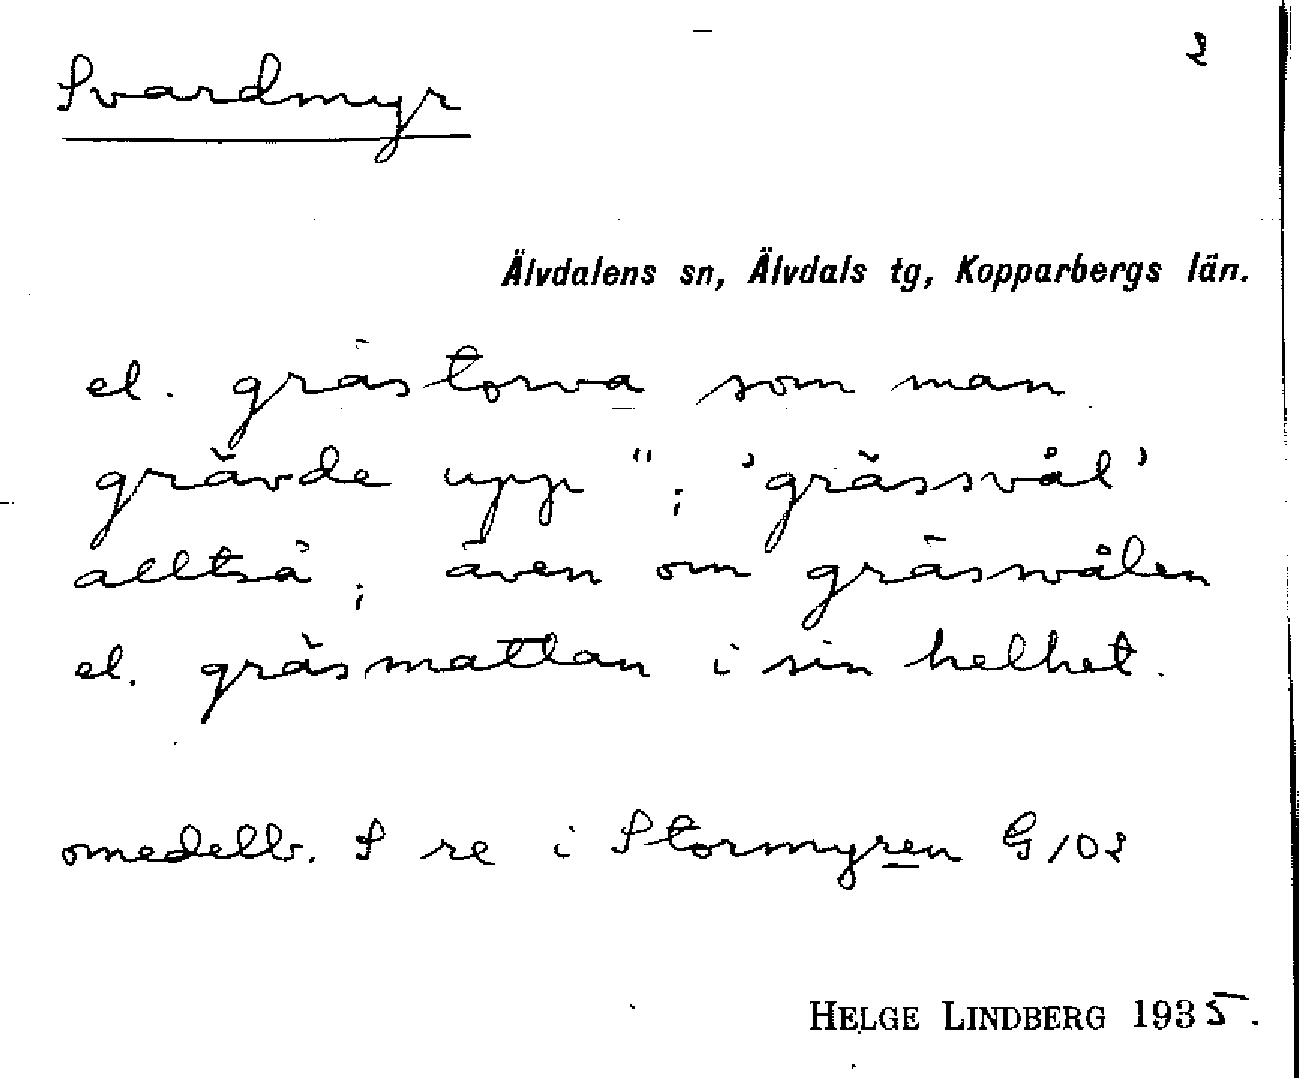 2
Svardmyr
Älvdalens sn, Älvdals tg, Kopparbergs län.
el. grästorva som man
grävde upp"; 'gräsvål'
alltså; även om gräsvålen
el. gräsmattan i sin helhet.
omedelb. S re i Stormyren G 102
HELGE LINDBERG 1935.